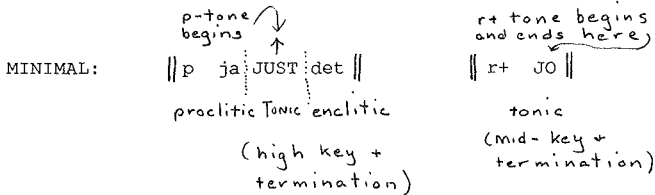 p-tone begins
r+ tone begins and ends here
MINIMAL: ‖ p ja JUST det ‖ ‖ r+ JO ‖
proclitic TONIC enclitic
tonic
(high key + termination)
(mid-key + termination)